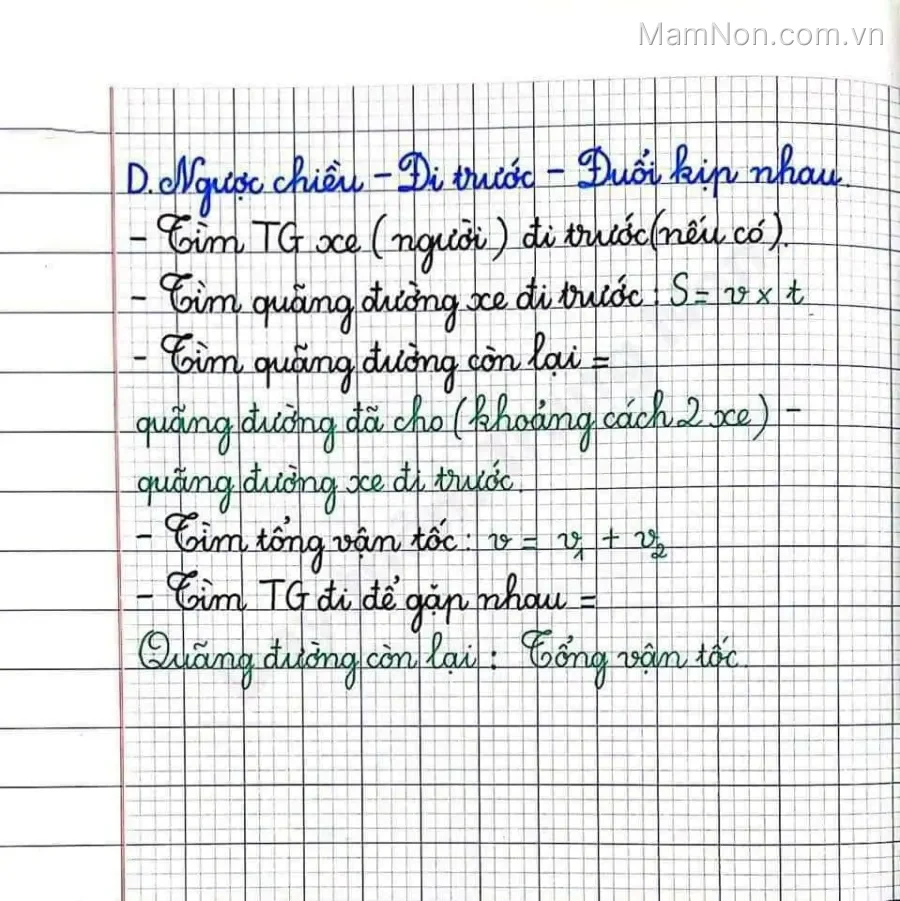 MamNon.com.vn
D. Ngược chiều - Đi trước - Đuổi kịp nhau.
- Tìm TG xe (người) đi trước (nếu có).
- Tìm quãng đường xe đi trước: S = v x t
- Tìm quãng đường còn lại =
quãng đường đã cho (khoảng cách 2 xe) -
quãng đường xe đi trước.
- Tìm tổng vận tốc: v = v₁ + v₂
- Tìm TG đi để gặp nhau =
Quãng đường còn lại : Tổng vận tốc.